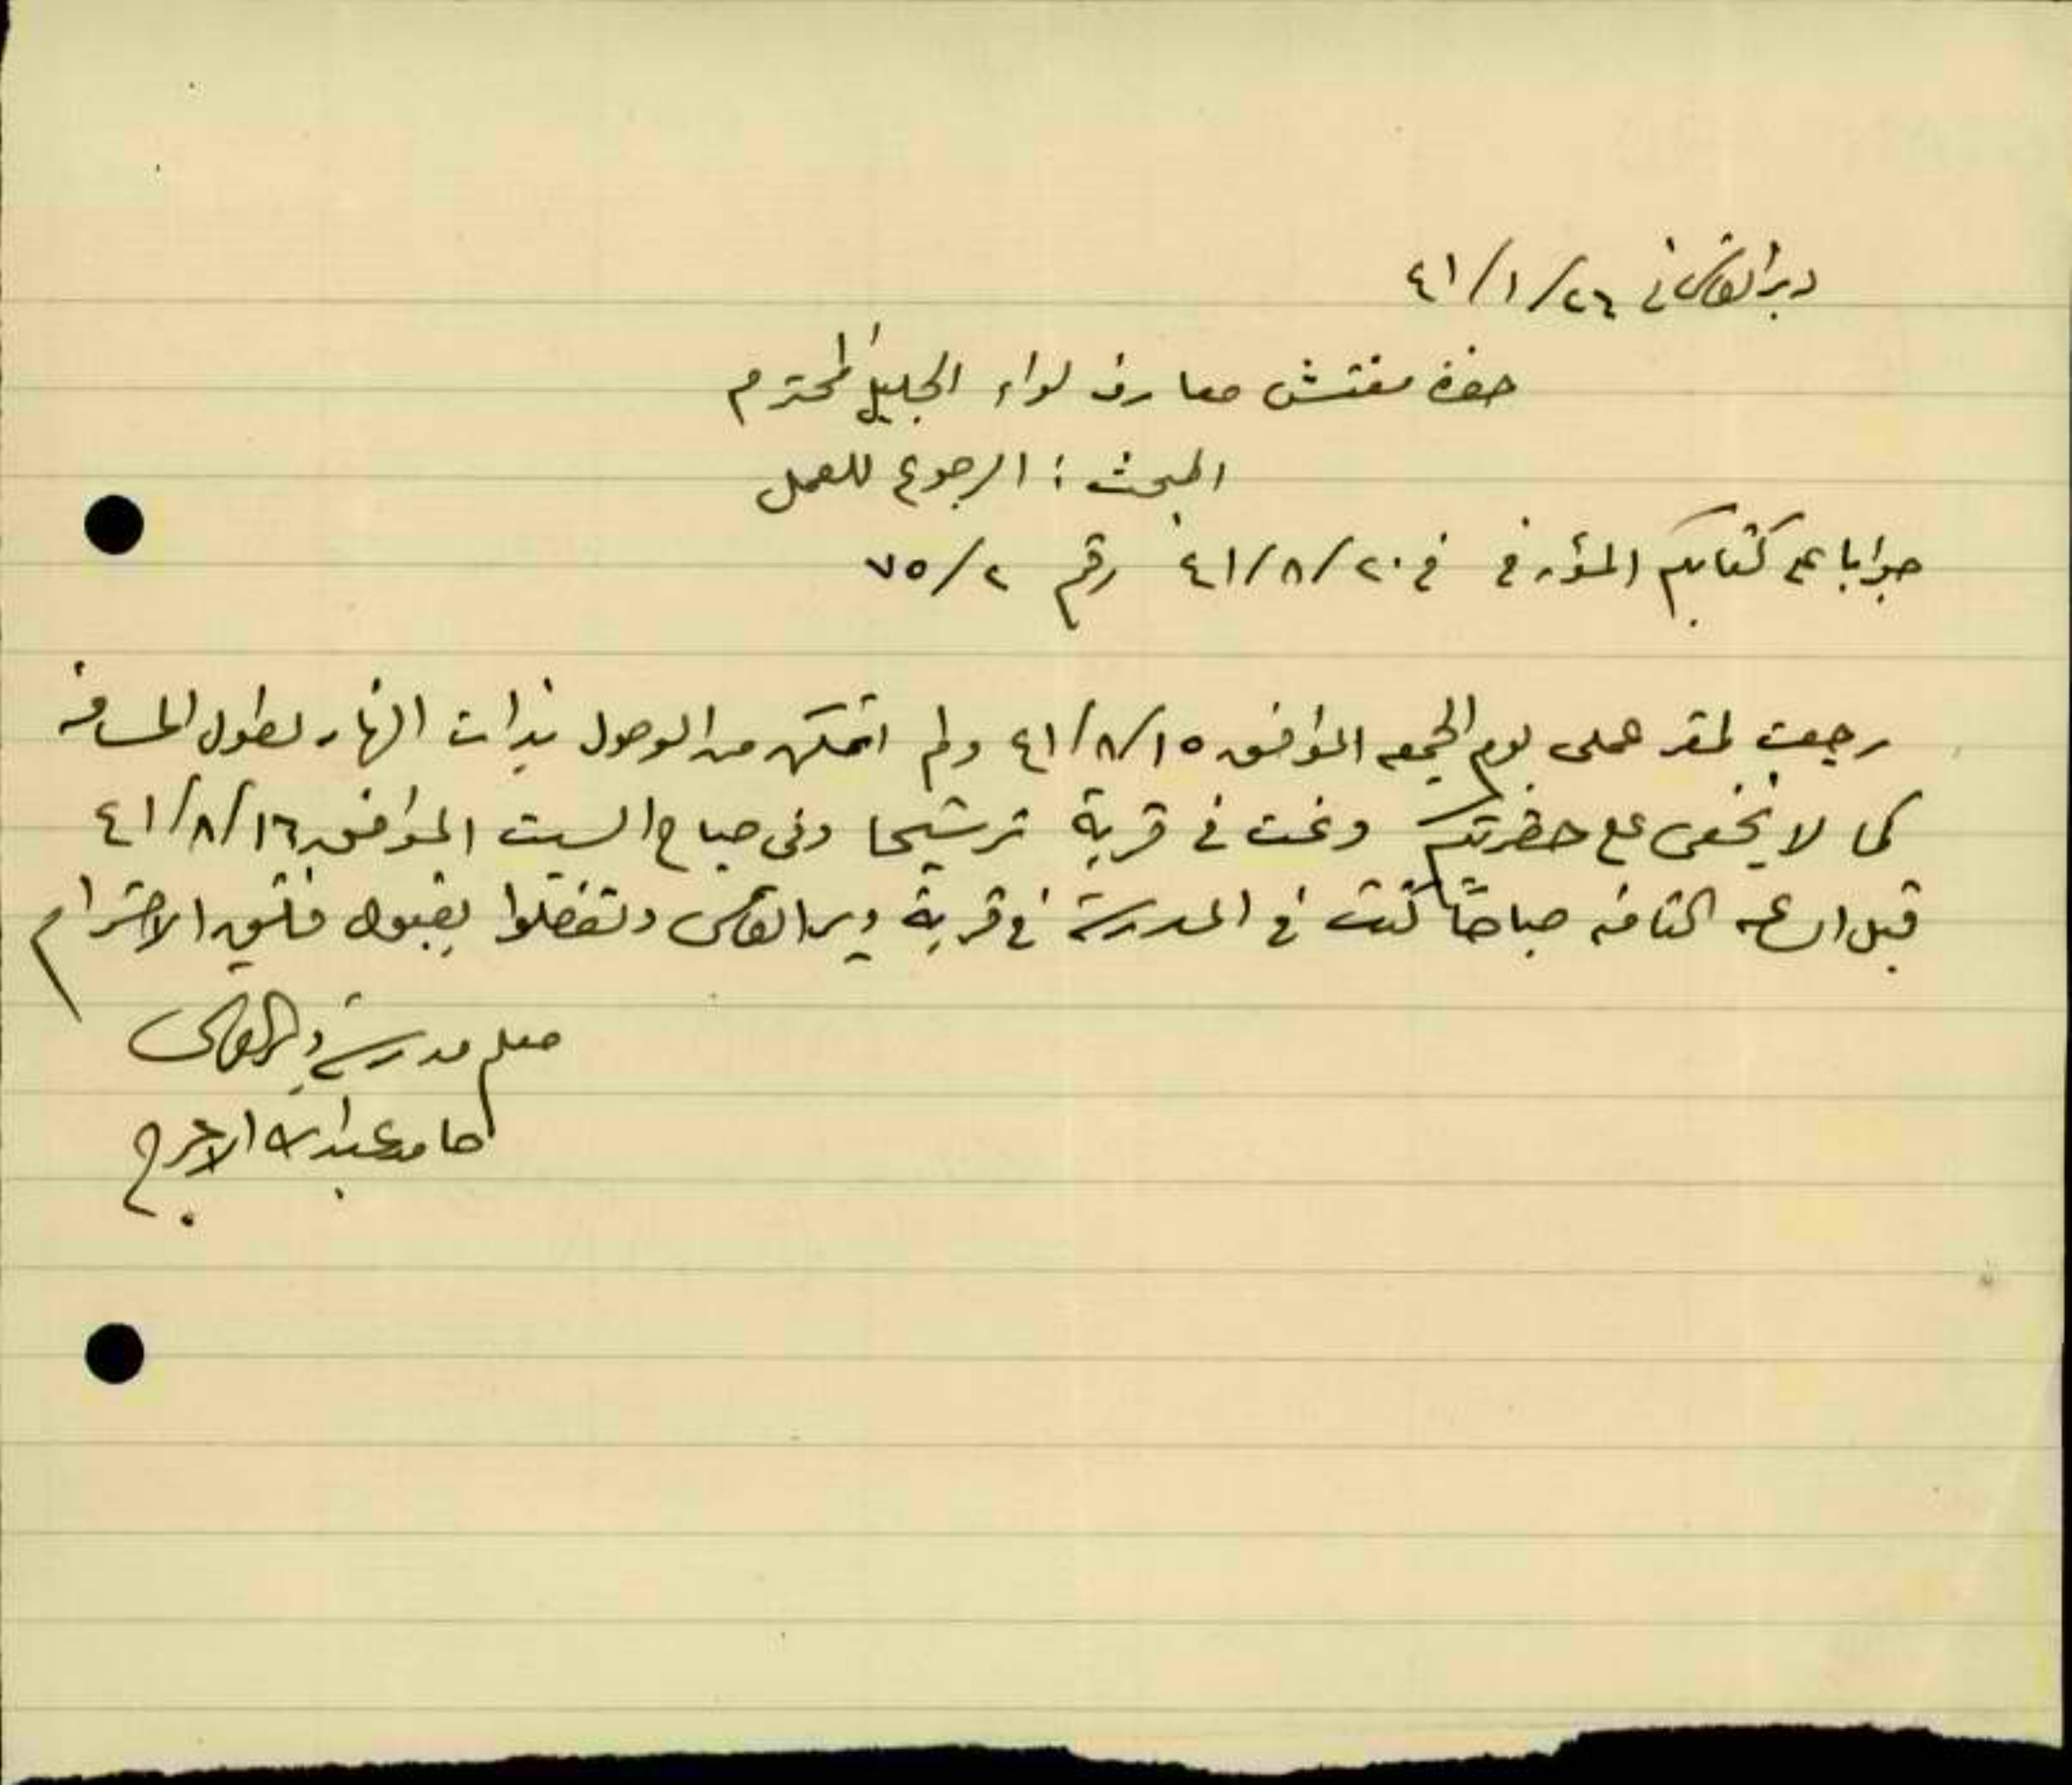 دير القاسي في ٢٦/١/٤١
حضرة مفتش معارف لواء الجليل المحترم
المبحث : الرجوع للعمل
جوابا على كتابكم المؤرخ في ٢٠/٨/٤١ رقم ٧٥/٢
رجعت لمقر عملي يوم الجمعه الموافق ١٥/٨/٤١ ولم اتمكن من الوصول بذات النهار لطول المسافه
كما لا يخفى على حضرتكم ونمت في قرية ترشيحا وفي صباح السبت الموافق ١٦/٨/٤١
قبل الساعه الثامنه صباحاً كنت في المدرسة في قرية دير القاسي وتفضلوا بقبول فائق الاحترام
معلم مدرسة دير القاسي
حامد عبد الله الاعرج